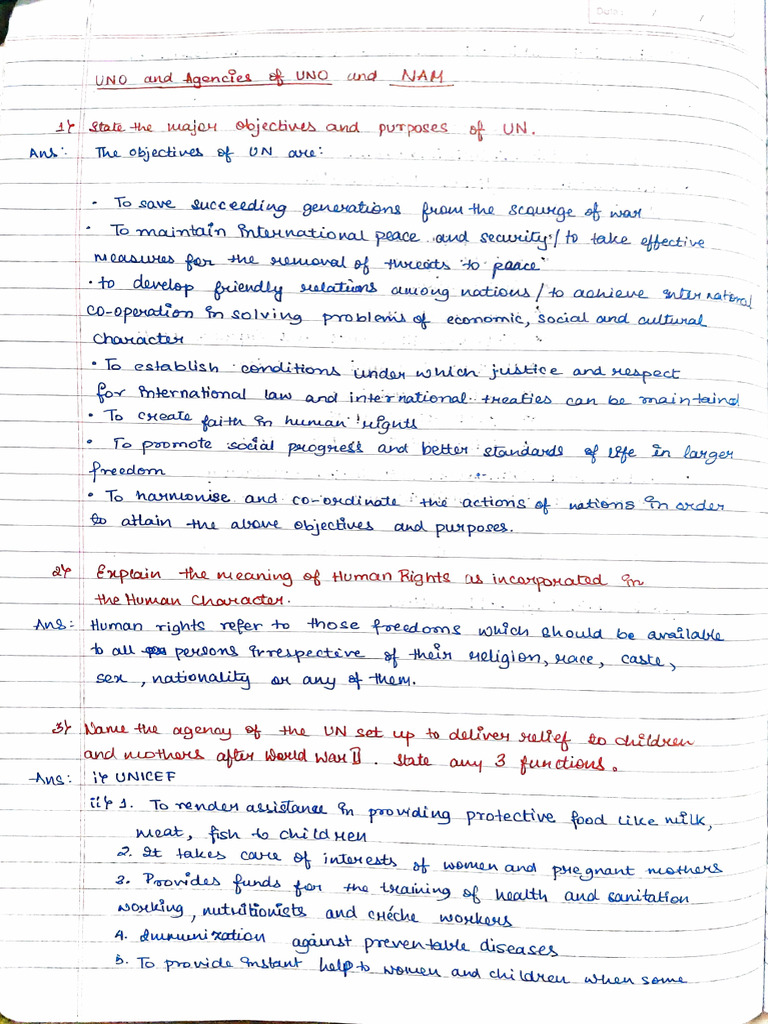 Date: / /
UNO and Agencies of UNO and NAM
1) State the major objectives and purposes of UN.
Ans: The objectives of UN are:
• To save succeeding generations from the scourge of war
• To maintain International peace and security / to take effective
measures for the removal of threats to peace
• to develop friendly relations among nations / to achieve international
co-operation in solving problems of economic, social and cultural
character
• To establish conditions under which justice and respect
for international law and international treaties can be maintaind
• To create faith in human rights
• To promote social progress and better standards of life in larger
freedom
• To harmonise and co-ordinate the actions of nations in order
to attain the above objectives and purposes.
2) Explain the meaning of Human Rights as incorporated in
the Human Character.
Ans: Human rights refer to those freedoms which should be available
to all persons irrespective of their religion, race, caste,
sex, nationality or any of them.
3) Name the agency of the UN set up to deliver relief to children
and mothers after World War II. State any 3 functions.
Ans: i) UNICEF
ii) 1. To render assistance in providing protective food like milk,
meat, fish to children
2. It takes care of interests of women and pregnant mothers
3. Provides funds for the training of health and sanitation
working, nutritionists and créche workers
4. Immunization against preventable diseases
5. To provide instant help to women and children when some